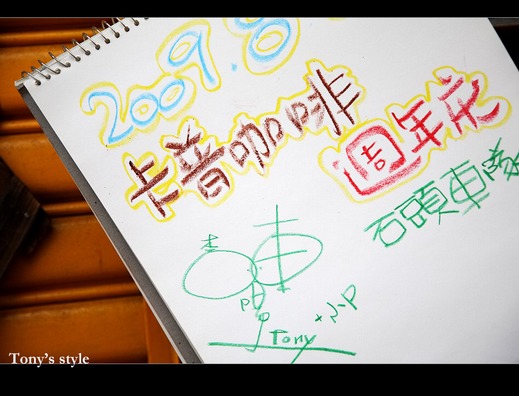 2009.8
卡音咖啡
週年庆
石頭車
+小P
Tony
Tony's style